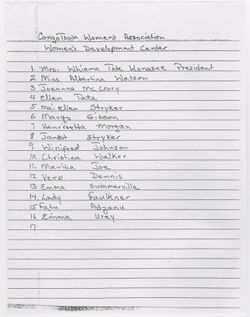 CongoTown Women's Association
Women's Development Center
1. Mrs. Whiema Tate Wonasue President
2 Miss Albertina Watson
3 Joeanna Mc Crory
4 Ellen Tate
5 Ma: Ellen Stryker
6 Margo Gibson
7 Henrietta Morgan
8 Janet Stryker
9 Winifred Johnson
10. Christina Walker
11. Martha Joe
12 Vero Dennis
13 Emma Summerville
14 Lady Faulkner
15 Fatu Adzanu
16 Emma Urey
17